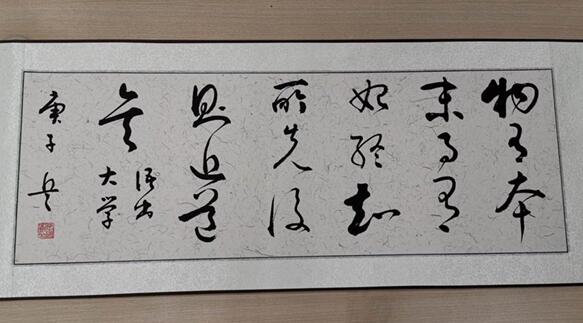 物有本
末事有
始终知
所先後
则近道
矣
语出
大学
庚子